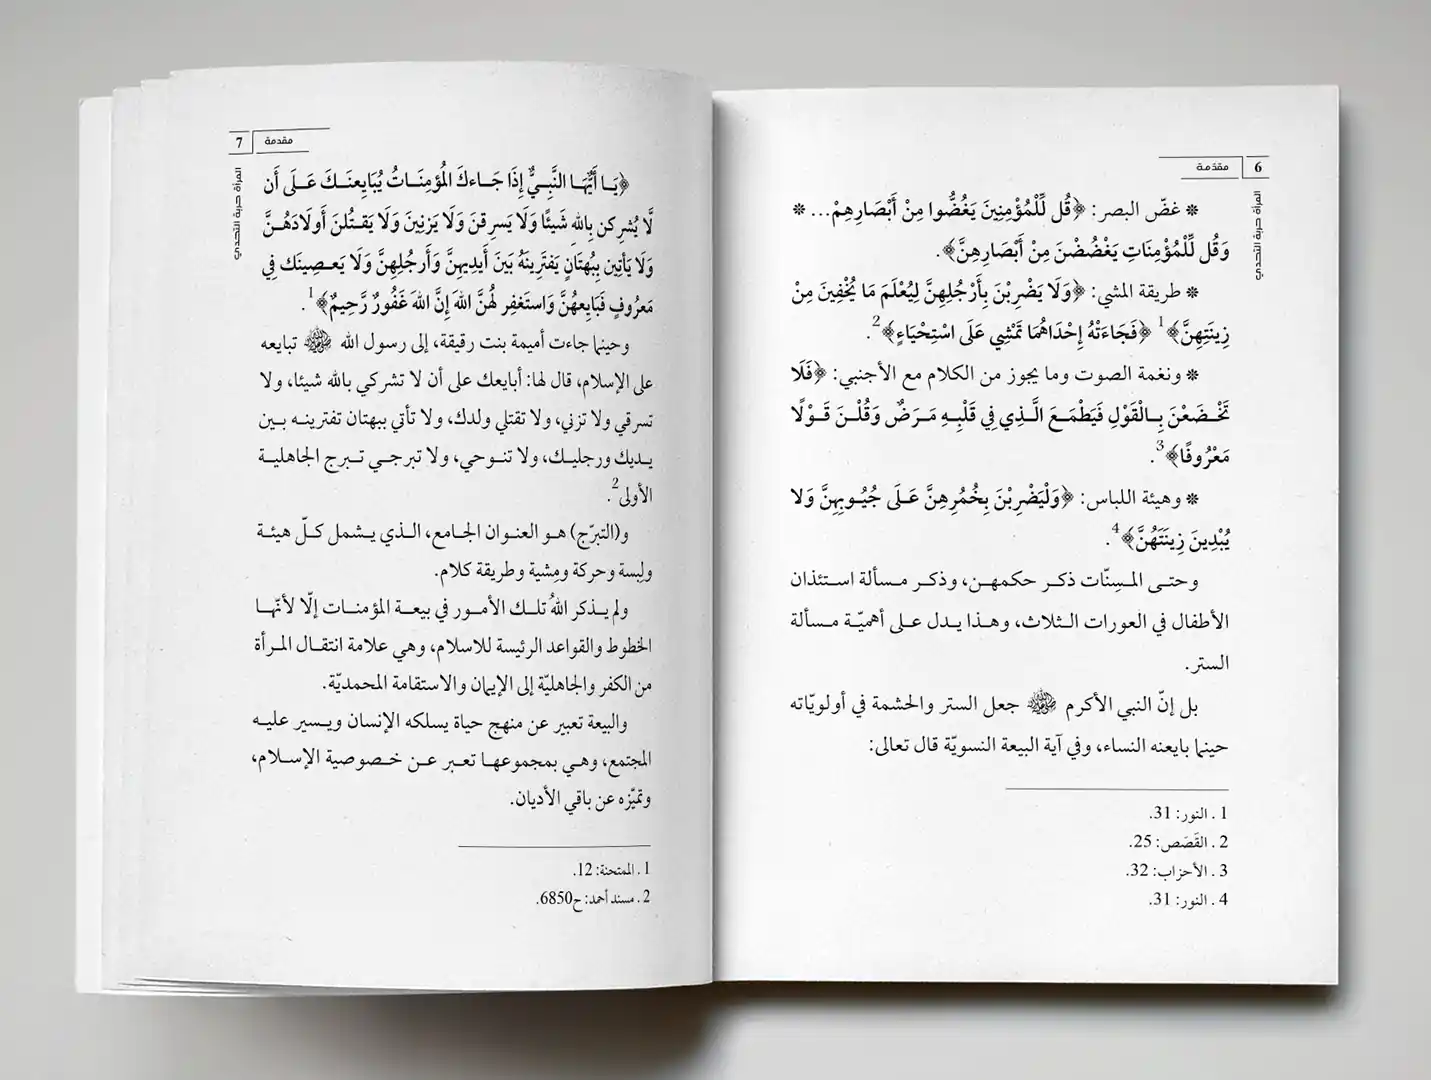 6
مقدّمة
المرأة حربة التحدي
❊ غضّ البصر: ﴿قُل لِّلْمُؤْمِنِينَ يَغُضُّوا مِنْ أَبْصَارِهِمْ... ❊
وَقُل لِّلْمُؤْمِنَاتِ يَغْضُضْنَ مِنْ أَبْصَارِهِنَّ﴾.
❊ طريقة المشي: ﴿وَلَا يَضْرِبْنَ بِأَرْجُلِهِنَّ لِيُعْلَمَ مَا يُخْفِينَ مِنْ
زِينَتِهِنَّ﴾1 ﴿فَجَاءَتْهُ إِحْدَاهُمَا تَمْشِي عَلَى اسْتِحْيَاءٍ﴾2.
❊ ونغمة الصوت وما يجوز من الكلام مع الأجنبي: ﴿فَلَا
تَخْضَعْنَ بِالْقَوْلِ فَيَطْمَعَ الَّذِي فِي قَلْبِهِ مَرَضٌ وَقُلْنَ قَوْلًا
مَعْرُوفًا﴾3.
❊ وهيئة اللباس: ﴿وَلْيَضْرِبْنَ بِخُمُرِهِنَّ عَلَى جُيُوبِهِنَّ وَلا
يُبْدِينَ زِينَتَهُنَّ﴾4.
وحتى المسِنّات ذكر حكمهن، وذكر مسألة استئذان
الأطفال في العورات الثلاث، وهذا يدل على أهميّة مسألة
الستر.
بل إنّ النبي الأكرم ﷺ جعل الستر والحشمة في أولويّاته
حينما بايعنه النساء، وفي آية البيعة النسويّة قال تعالى:
1 . النور: 31.
2 . القَصَص: 25.
3 . الأحزاب: 32.
4 . النور: 31.
مقدمة
7
المرأة حربة التحدي
﴿يَا أَيُّهَا النَّبِيُّ إِذَا جَاءكَ المُؤْمِنَاتُ يُبَايِعنَكَ عَلَى أَن
لَّا يُشرِكن بِاللهِ شَيئًا وَلَا يَسرِقنَ وَلَا يَزنِينَ وَلَا يَقتُلنَ أَولَادَهُنَّ
وَلَا يَأتِين بِبُهتَانٍ يَفتَرِينَهُ بَينَ أَيدِيهِنَّ وَأَرجُلِهِنَّ وَلَا يَعصِينَك فِي
مَعرُوفٍ فَبَايِعهُنَّ وَاستَغفِر لَهُنَّ اللهَ إِنَّ اللهَ غَفُورٌ رَّحِيمٌ﴾1.
وحينما جاءت أميمة بنت رقيقة، إلى رسول الله ﷺ تبايعه
على الإسلام، قال لها: أبايعك على أن لا تشركي بالله شيئا، ولا
تسرقي ولا تزني، ولا تقتلي ولدك، ولا تأتي ببهتان تفترينه بين
يديك ورجليك، ولا تنوحي، ولا تبرجي تبرج الجاهلية
الأولى2.
و(التبرّج) هو العنوان الجامع، الذي يشمل كلّ هيئة
ولِبسة وحركة ومِشية وطريقة كلام.
ولم يذكر اللهُ تلك الأمور في بيعة المؤمنات إلّا لأنّها
الخطوط والقواعد الرئيسة للاسلام، وهي علامة انتقال المرأة
من الكفر والجاهليّة إلى الإيمان والاستقامة المحمديّة.
والبيعة تعبير عن منهج حياة يسلكه الإنسان ويسير عليه
المجتمع، وهي بمجموعها تعبر عن خصوصية الإسلام،
وتميّزه عن باقي الأديان.
1 . الممتحنة: 12.
2 . مسند أحمد: ح6850.